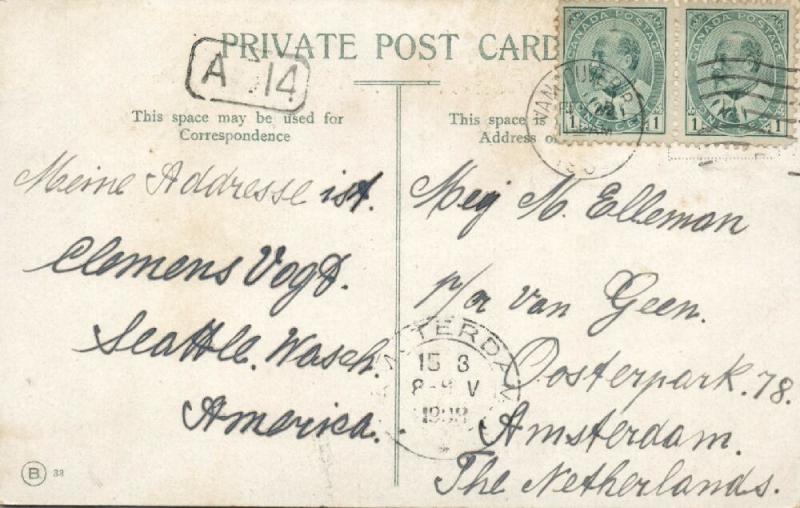 PRIVATE POST CARD
CANADA POSTAGE
CANADA POSTAGE
1 CENT 1
1 1
A 14
This space may be used for
Correspondence
This space is
Address
Meine Addresse ist.
Clemens Vogd.
Seattle. Wasch.
America.
Mej M. Elleman
p/a van Geen.
Oosterpark. 78.
Amsterdam.
The Netherlands.
AMSTERDAM
15 3
8-9 V
1908
B 33